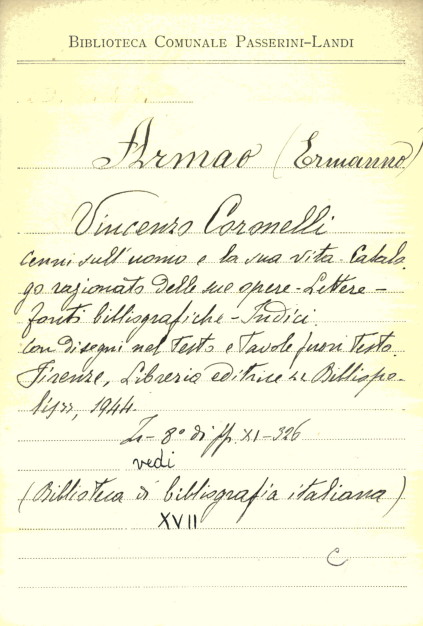 BIBLIOTECA COMUNALE PASSERINI-LANDI
Armao (Ermanno)
Vincenzo Coronelli
cenni sull'uomo e la sua vita - Catalo.
go ragionato delle sue opere - Lettere -
fonti bibliografiche - Indici
con disegni nel testo e tavole fuori testo.
Firenze, Libreria editrice Bibliopo-
lis, 1944.
In - 8° di pp. XI - 326
vedi
(Biblioteca di bibliografia italiana)
XVII
C